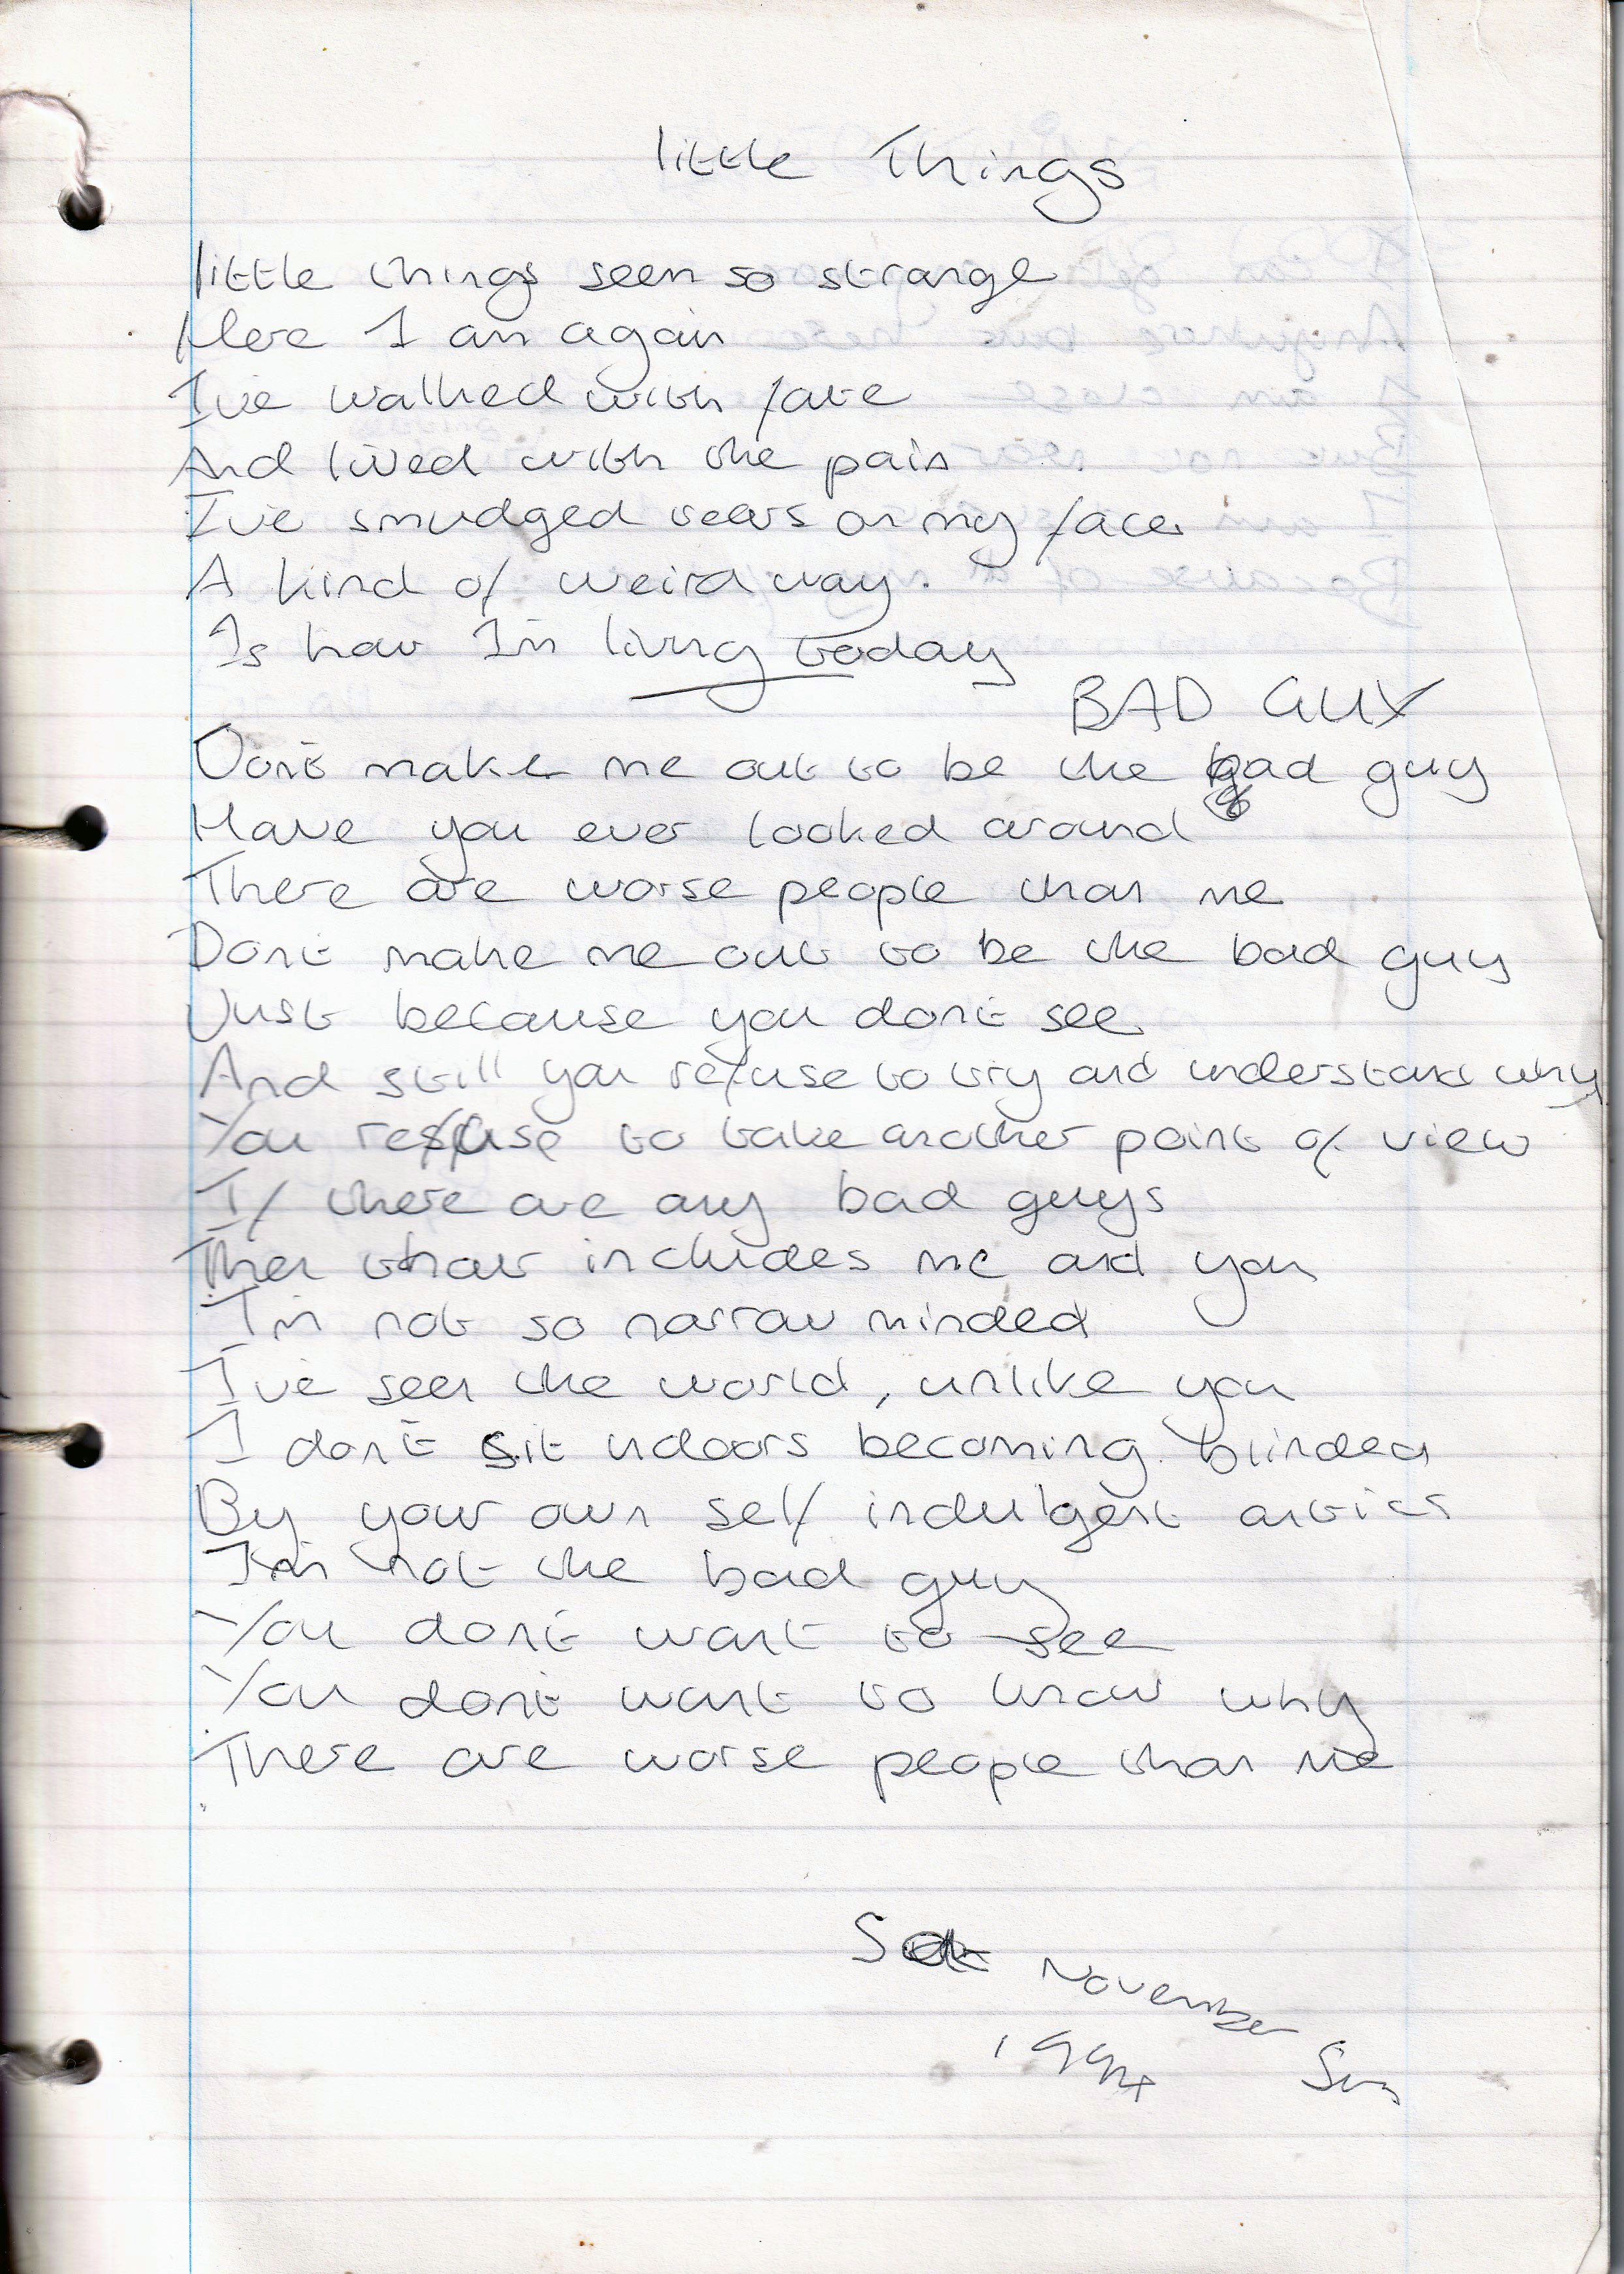 little Things
little things seem so strange
Here I am again
I've walked with fate
And lived with the pain
I've smudged tears on my face
A kind of weird way.
Is how I'm living today
BAD GUY
Don't make me out to be the bad guy
Have you ever looked around
There are worse people than me
Don't make me out to be the bad guy
Just because you don't see
And still you refuse to try and understand why
You refuse to take another point of view
If there are any bad guys
Then that includes me and you
I'm not so narrow minded
I've seen the world, unlike you
I don't sit indoors becoming blinded
By your own self indulgent antics
I'm not the bad guy
You don't want to see
You don't want to know why
There are worse people than me
November
1994